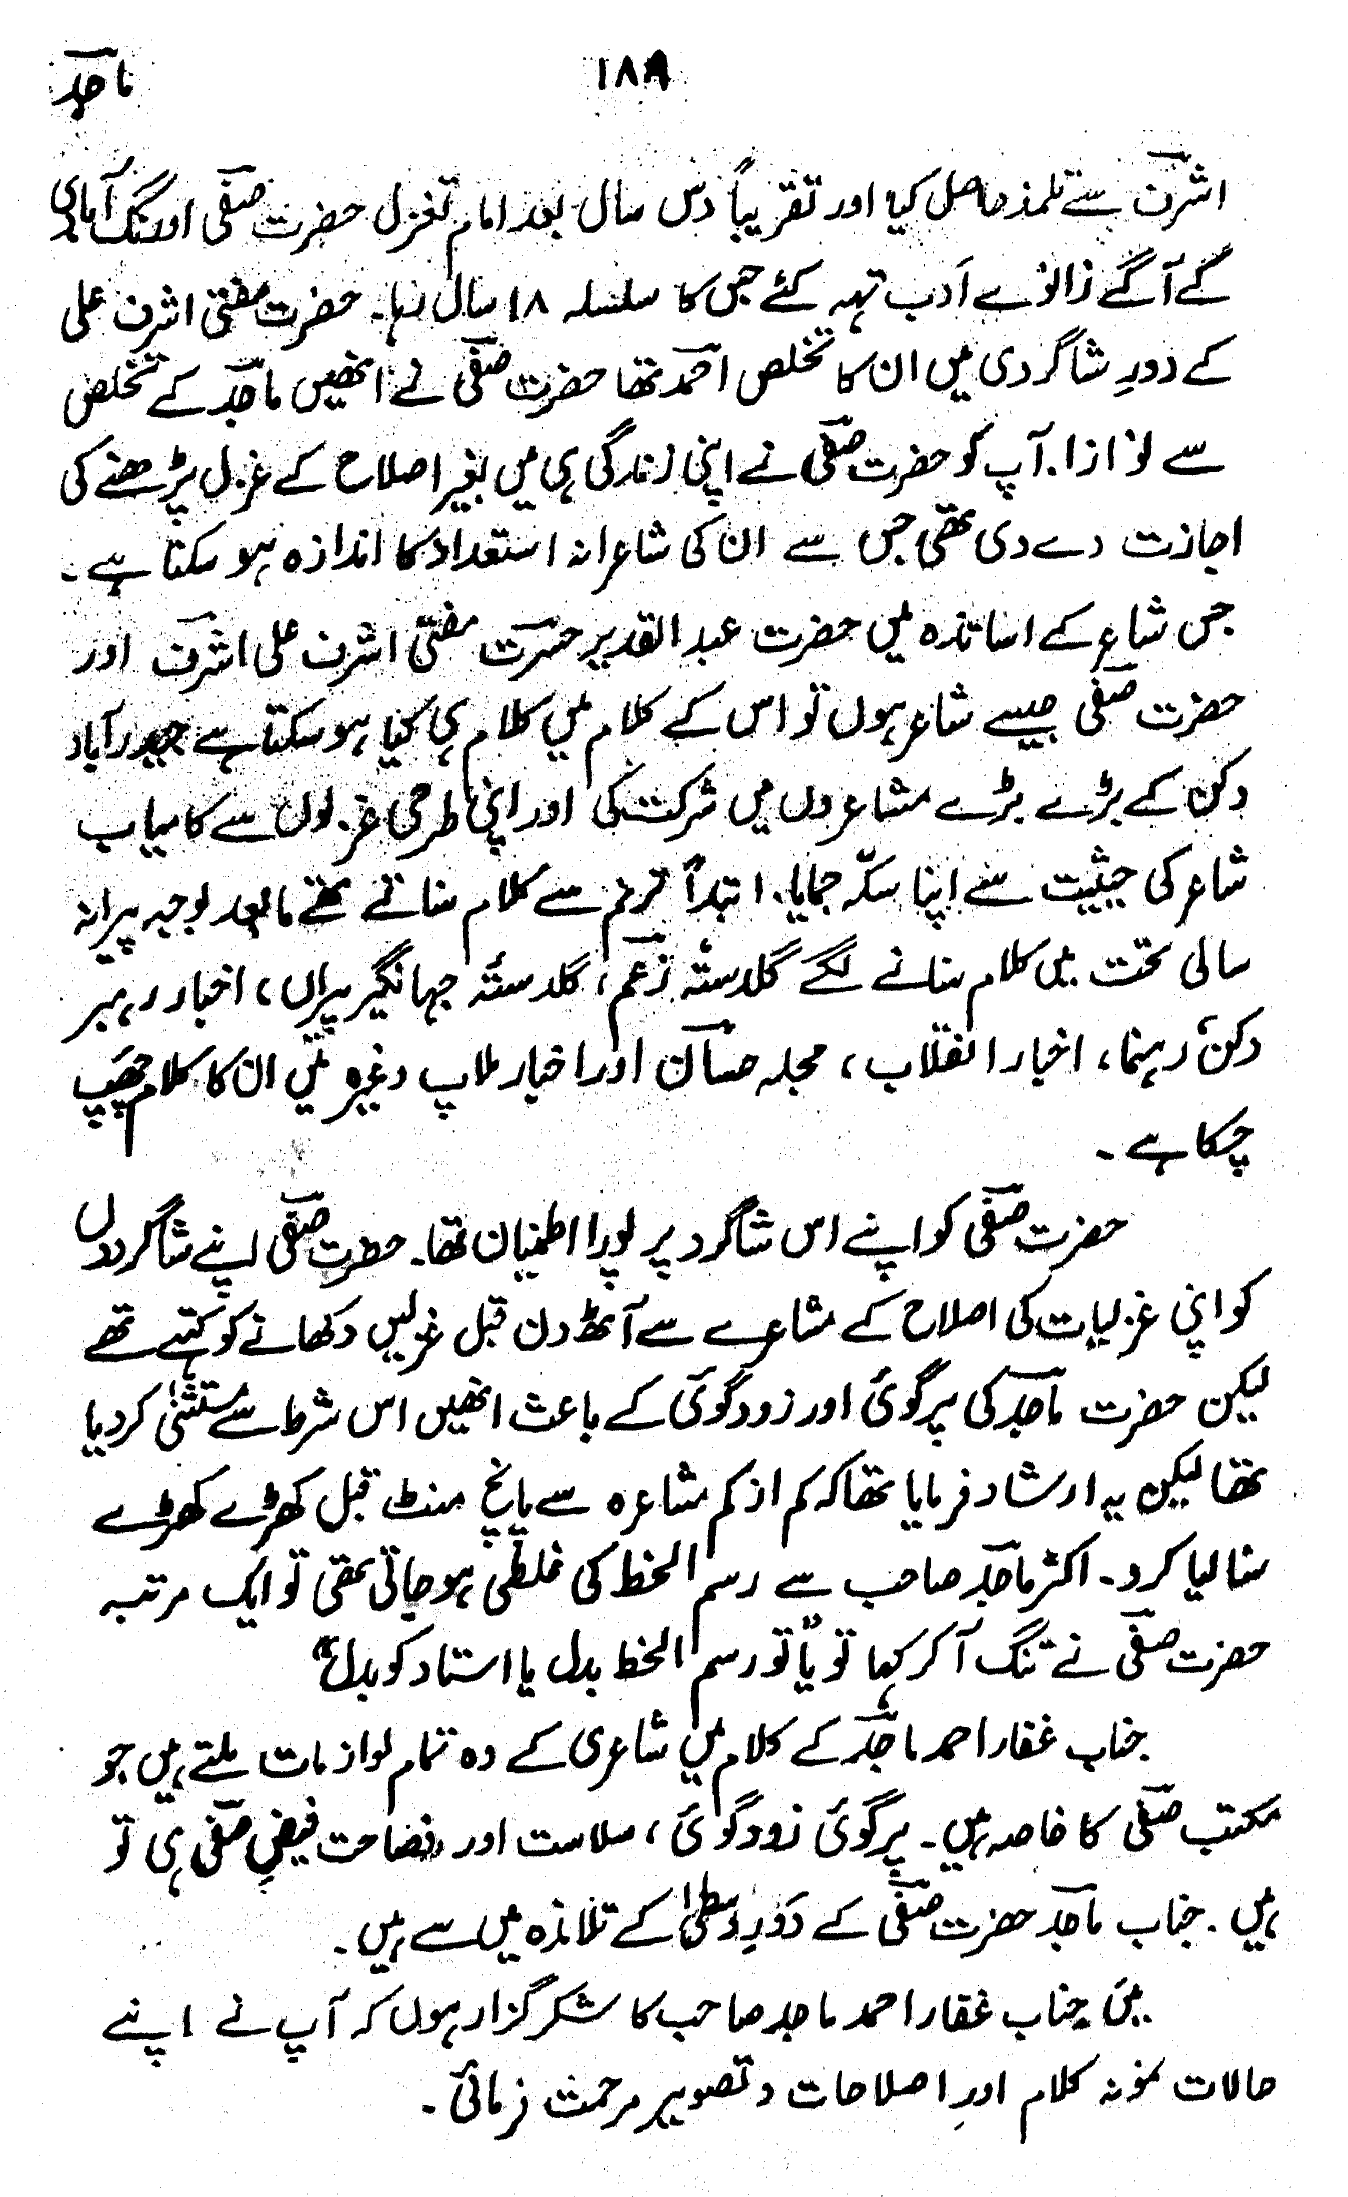 ماجد
۱۸۹
اشرفؔ سے تلمذ حاصل کیا اور تقریباً دس سال بعد امام تغزل حضرت صفیؔ اورنگ آبادی
کے آگے زانوے ادب تہہ کئے جس کا سلسلہ ۱۸ سال رہا۔ حضرت مفتی اشرف علی
کے دورِ شاگردی میں ان کا تخلص احمدؔ تھا حضرت صفیؔ نے انھیں ماجدؔ کے تخلص
سے نوازا۔ آپ کو حضرت صفیؔ نے اپنی زندگی ہی میں بغیر اصلاح کے غزل پڑھنے کی
اجازت دے دی تھی جس سے ان کی شاعرانہ استعداد کا اندازہ ہو سکتا ہے۔
جس شاعر کے اساتذہ میں حضرت عبد القدیر حسرتؔ مفتی اشرف علی اشرفؔ اور
حضرت صفیؔ جیسے شاعر ہوں تو اس کے کلام میں کلام ہی کیا ہو سکتا ہے حیدرآباد
دکن کے بڑے بڑے مشاعروں میں شرکت کی اور اپنی طرحی غزلوں سے کامیاب
شاعر کی حیثیت سے اپنا سکہّ جمایا۔ ابتداً ترنم سے کلام سناتے تھے مابعد بوجہ پیرانہ
سالی تحت میں کلام سنانے لگے گلدستۂ زعمؔ، گلدستۂ جہانگیر پیراں، اخبار رہبر
دکن، رہنما، اخبار انقلاب، مجلہ حسانؔ اور اخبار ملاپ وغیرہ میں ان کا کلام چھپ
چکا ہے۔
حضرت صفیؔ کو اپنے اس شاگرد پر پورا اطمینان تھا۔ حضرت صفیؔ اپنے شاگردوں
کو اپنی غزلیات کی اصلاح کے مشاعرے سے آٹھ دن قبل غزلیں دکھانے کو کہتے تھے
لیکن حضرت ماجدؔ کی پرگوئی اور زودگوئی کے باعث انھیں اس شرط سے مستثنیٰ کردیا
تھا لیکن یہ ارشاد فرمایا تھا کہ کم از کم مشاعرہ سے پانچ منٹ قبل کھڑے کھڑے
سنا لیا کرو۔ اکثر ماجدؔ صاحب سے رسم الخط کی غلطی ہو جاتی تھی تو ایک مرتبہ
حضرت صفیؔ نے تنگ آ کر کہا تو "یا تو رسم الخط بدل یا استاد کو بدل"
جناب غفار احمد ماجدؔ کے کلام میں شاعری کے وہ تمام لوازمات ملتے ہیں جو
مکتب صفیؔ کا خاصہ ہیں۔ پرگوئی زودگوئی، سلاست اور فصاحت فیضِ صفیؔ ہی تو
ہیں۔ جناب ماجدؔ حضرت صفیؔ کے دورِ وسطیٰ کے تلامذہ میں سے ہیں۔
میں جناب غفار احمد ماجد صاحب کا شکر گزار ہوں کہ آپ نے اپنے
حالات نمونہ کلام اور اصلاحات و تصویر مرحمت فرمائی۔